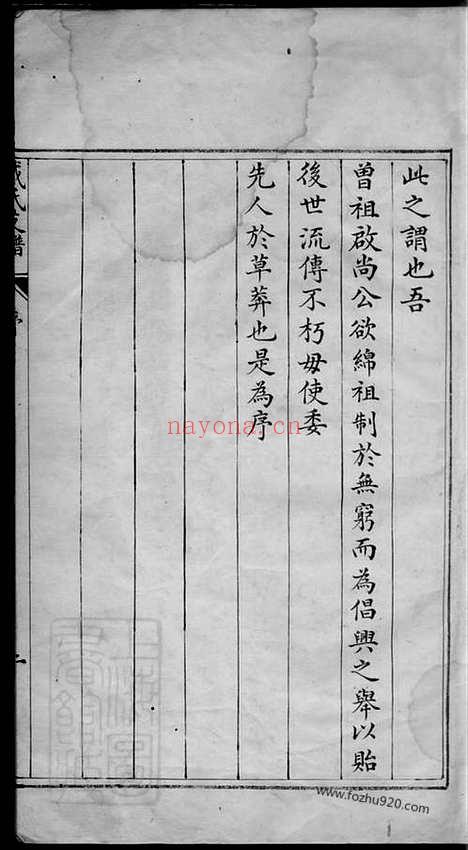 此之謂也吾
曾祖啟尚公欲綿祖制於無窮而為倡興之舉以貽
後世流傳不朽毋使委
先人於草莽也是為序
氏支譜
序
二
nayona.cn
www.fozhu920.com